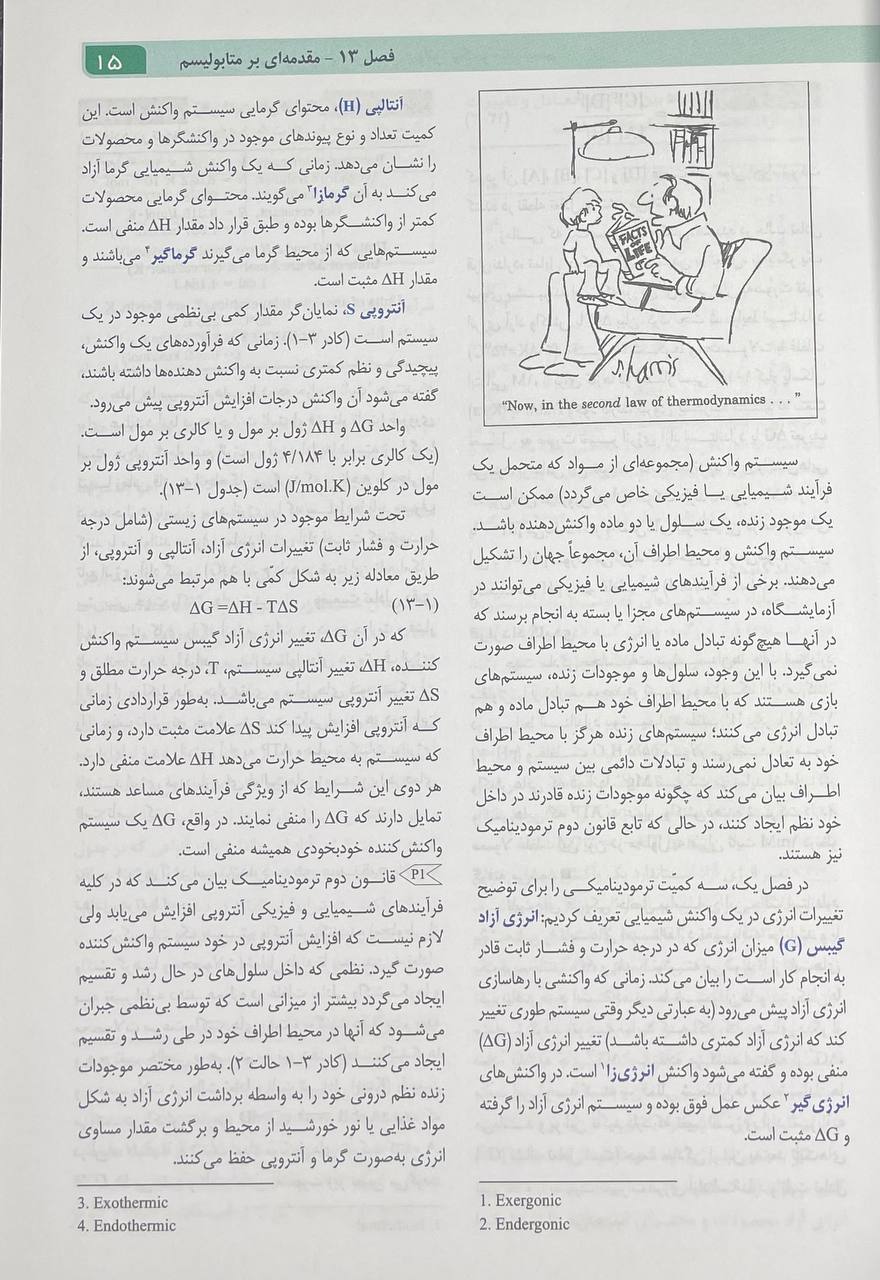 ۱۵
فصل ۱۳ - مقدمه‌ای بر متابولیسم
FACTS
OF
LIFE
S. Harris
“Now, in the second law of thermodynamics . . .”
سیستم واکنش (مجموعه‌ای از مواد که متحمل یک
فرآیند شیمیایی یا فیزیکی خاص می‌گردد) ممکن است
یک موجود زنده، یک سلول یا دو ماده واکنش‌دهنده باشد.
سیستم واکنش و محیط اطراف آن، مجموعاً جهان را تشکیل
می‌دهند. برخی از فرآیندهای شیمیایی یا فیزیکی می‌توانند در
آزمایشگاه، در سیستم‌های مجزا یا بسته به انجام برسند که
در آنها هیچ‌گونه تبادل ماده یا انرژی با محیط اطراف صورت
نمی‌گیرد. با این وجود، سلول‌ها و موجودات زنده، سیستم‌های
بازی هستند که با محیط اطراف خود هم تبادل ماده و هم
تبادل انرژی می‌کنند؛ سیستم‌های زنده هرگز با محیط اطراف
خود به تعادل نمی‌رسند و تبادلات دائمی بین سیستم و محیط
اطراف بیان می‌کند که چگونه موجودات زنده قادرند در داخل
خود نظم ایجاد کنند، در حالی که تابع قانون دوم ترمودینامیک
نیز هستند.
در فصل یک، سه کمیّت ترمودینامیکی را برای توضیح
تغییرات انرژی در یک واکنش شیمیایی تعریف کردیم: انرژی آزاد
گیبس (G) میزان انرژی که در درجه حرارت و فشار ثابت قادر
به انجام کار است را بیان می‌کند. زمانی که واکنشی با رهاسازی
انرژی آزاد پیش می‌رود (به عبارتی دیگر وقتی سیستم طوری تغییر
کند که انرژی آزاد کمتری داشته باشد) تغییر انرژی آزاد (ΔG)
منفی بوده و گفته می‌شود واکنش انرژی‌زا۱ است. در واکنش‌های
انرژی‌گیر۲ عکس عمل فوق بوده و سیستم انرژی آزاد را گرفته
و ΔG مثبت است.
1. Exergonic
2. Endergonic
آنتالپی (H)، محتوای گرمایی سیستم واکنش است. این
کمیت تعداد و نوع پیوندهای موجود در واکنشگرها و محصولات
را نشان می‌دهد. زمانی که یک واکنش شیمیایی گرما آزاد
می‌کند به آن گرمازا۳ می‌گویند. محتوای گرمایی محصولات
کمتر از واکنشگرها بوده و طبق قرار داد مقدار ΔH منفی است.
سیستم‌هایی که از محیط گرما می‌گیرند گرماگیر۴ می‌باشند و
مقدار ΔH مثبت است.
آنتروپی S، نمایان‌گر مقدار کمی بی‌نظمی موجود در یک
سیستم است (کادر ۳-۱). زمانی که فرآورده‌های یک واکنش،
پیچیدگی و نظم کمتری نسبت به واکنش دهنده‌ها داشته باشند،
گفته می‌شود آن واکنش درجات افزایش آنتروپی پیش می‌رود.
واحد ΔG و ΔH ژول بر مول و یا کالری بر مول است.
(یک کالری برابر با ۴/۱۸۴ ژول است) و واحد آنتروپی ژول بر
مول در کلوین (J/mol.K) است (جدول ۱-۱۳).
تحت شرایط موجود در سیستم‌های زیستی (شامل درجه
حرارت و فشار ثابت) تغییرات انرژی آزاد، آنتالپی و آنتروپی، از
طریق معادله زیر به شکل کمّی با هم مرتبط می‌شوند:
(۱-۱۳) ΔG =ΔH - TΔS
که در آن ΔG، تغییر انرژی آزاد گیبس سیستم واکنش
کننده، ΔH تغییر آنتالپی سیستم، T، درجه حرارت مطلق و
ΔS تغییر آنتروپی سیستم می‌باشد. به‌طور قراردادی زمانی
که آنتروپی افزایش پیدا کند ΔS علامت مثبت دارد، و زمانی
که سیستم به محیط حرارت می‌دهد ΔH علامت منفی دارد.
هر دوی این شرایط که از ویژگی فرآیندهای مساعد هستند،
تمایل دارند که ΔG را منفی نمایند. در واقع، ΔG یک سیستم
واکنش‌کننده خودبخودی همیشه منفی است.
P1 قانون دوم ترمودینامیک بیان می‌کند که در کلیه
فرآیندهای شیمیایی و فیزیکی آنتروپی افزایش می‌یابد ولی
لازم نیست که افزایش آنتروپی در خود سیستم واکنش کننده
صورت گیرد. نظمی که داخل سلول‌های در حال رشد و تقسیم
ایجاد می‌گردد بیشتر از میزانی است که توسط بی‌نظمی جبران
می‌شود که آنها در محیط اطراف خود در طی رشد و تقسیم
ایجاد می‌کنند (کادر ۳-۱ حالت ۲). به‌طور مختصر موجودات
زنده نظم درونی خود را به واسطه برداشت انرژی آزاد به شکل
مواد غذایی یا نور خورشید از محیط و برگشت مقدار مساوی
انرژی به‌صورت گرما و آنتروپی حفظ می‌کنند.
3. Exothermic
4. Endothermic